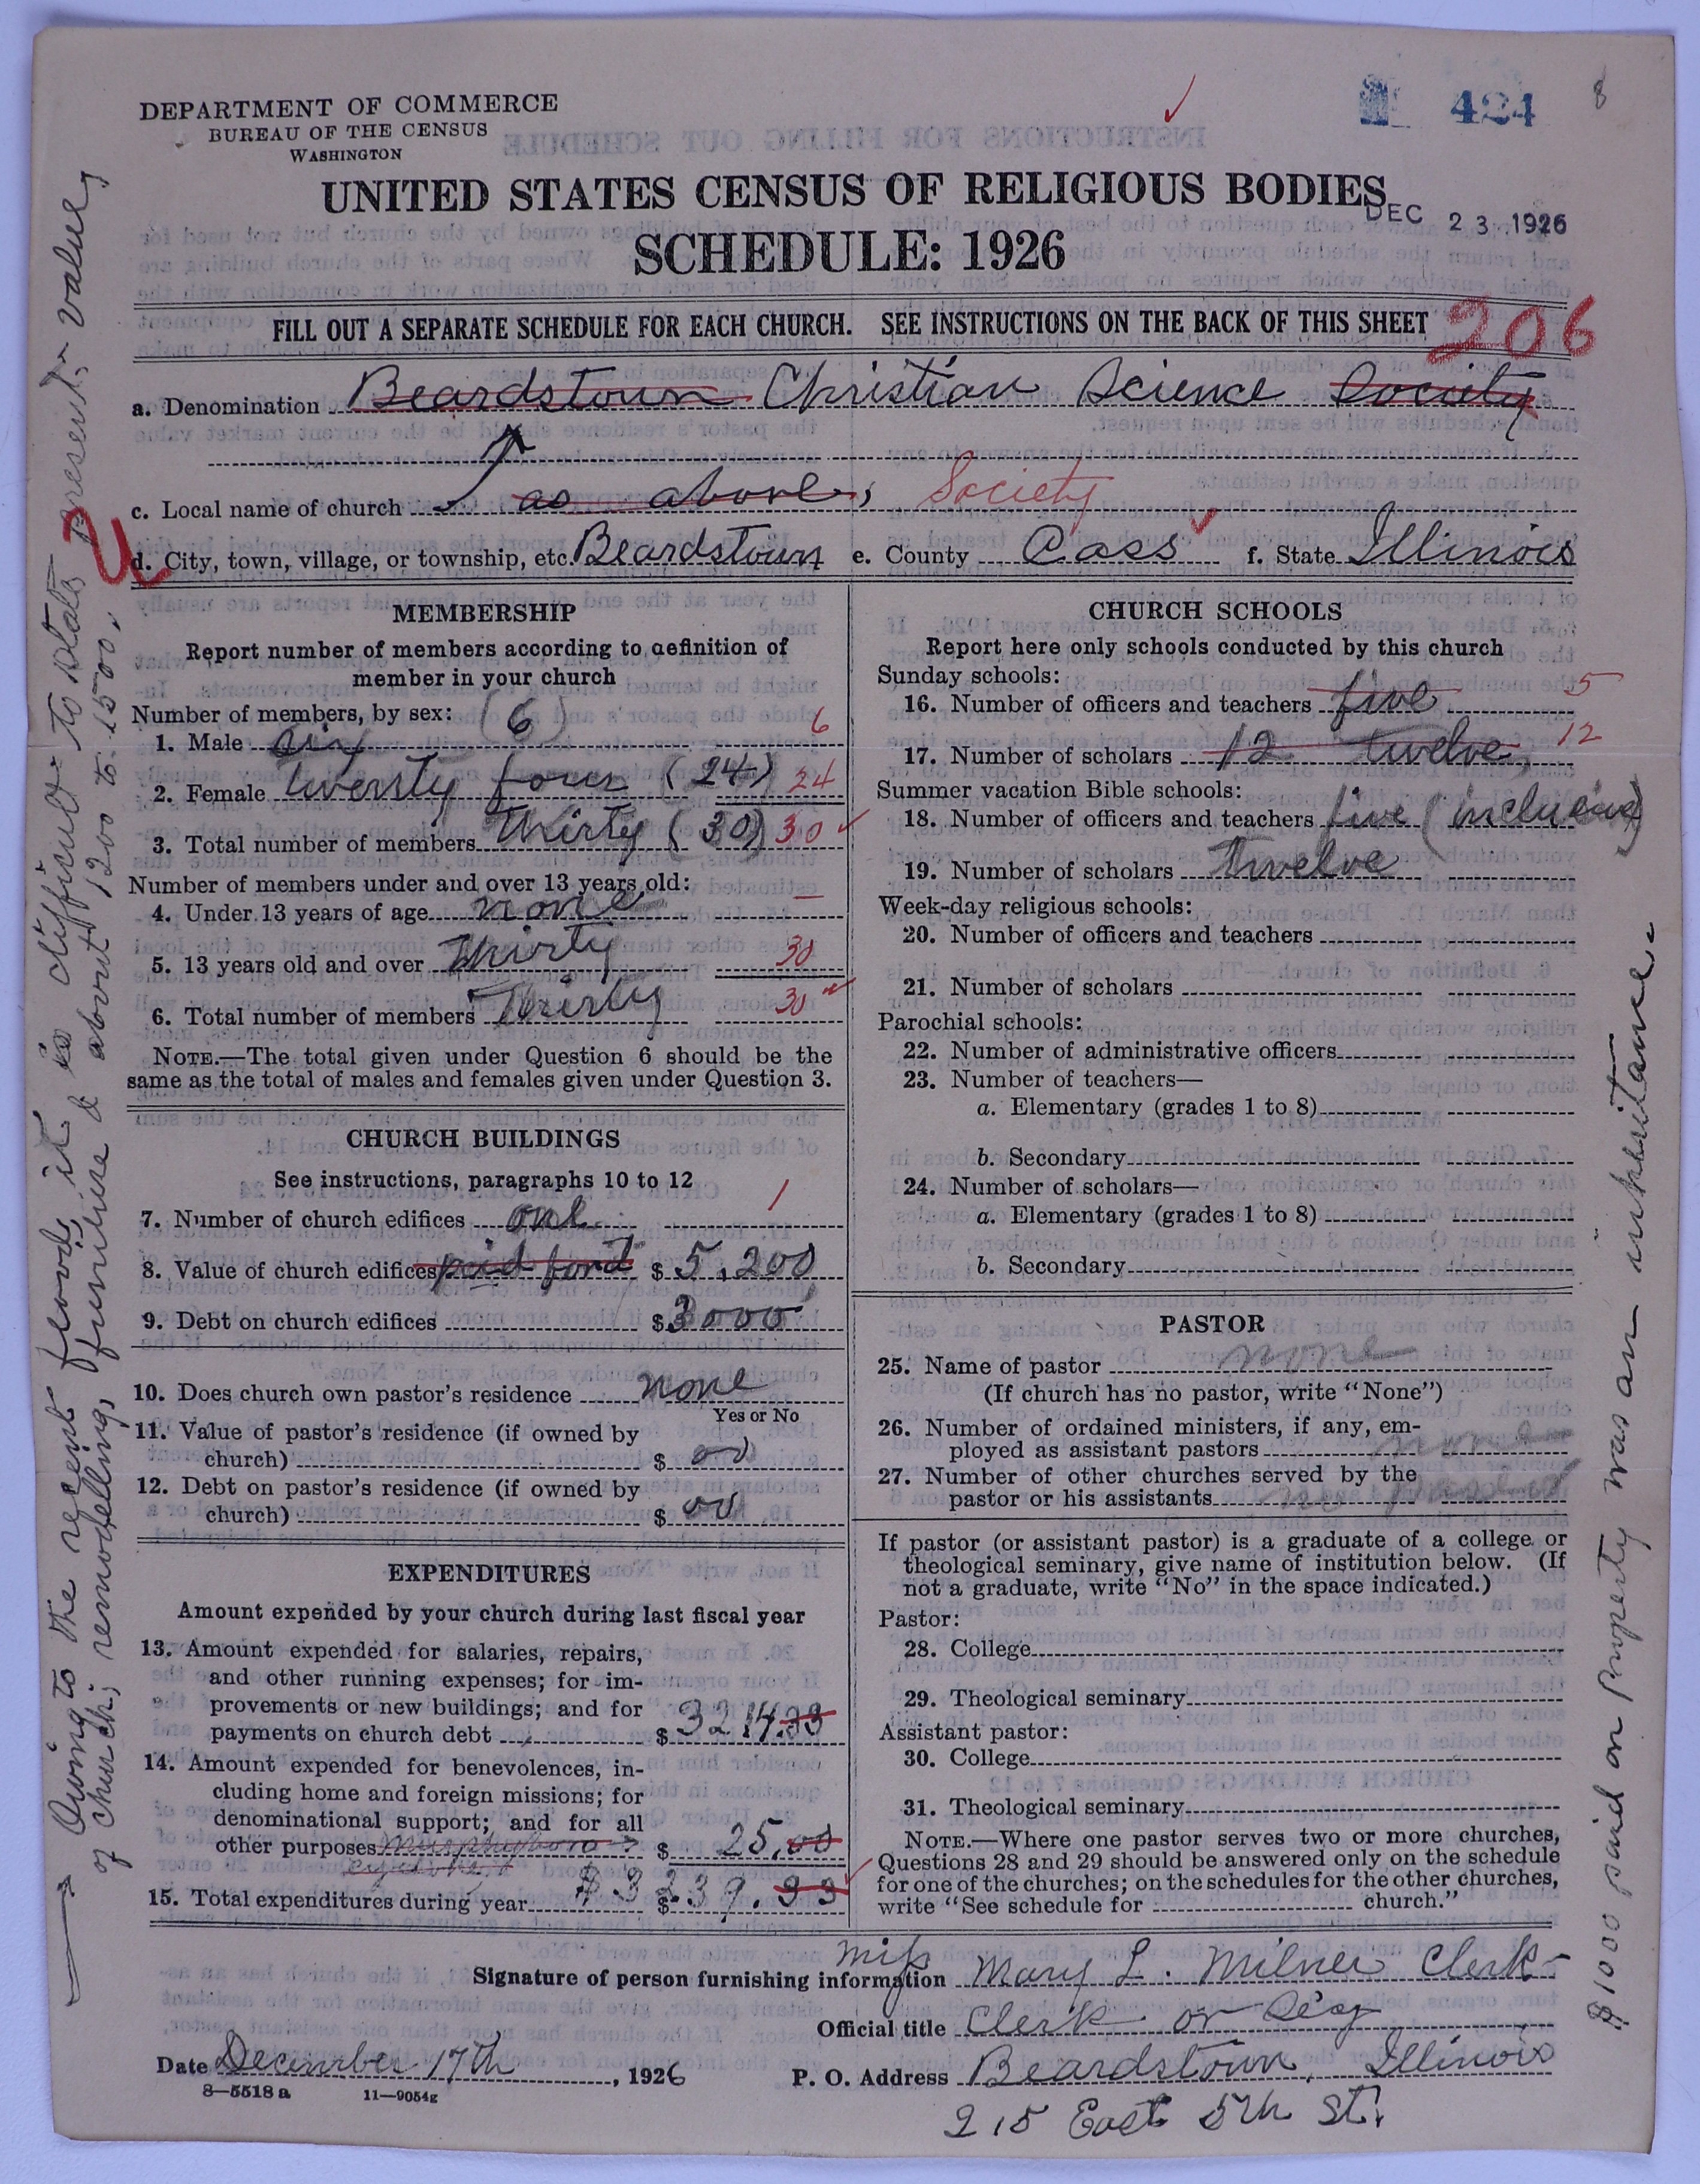 DEPARTMENT OF COMMERCE
BUREAU OF THE CENSUS
WASHINGTON
424
8
UNITED STATES CENSUS OF RELIGIOUS BODIES
DEC 23 1926
SCHEDULE: 1926
FILL OUT A SEPARATE SCHEDULE FOR EACH CHURCH. SEE INSTRUCTIONS ON THE BACK OF THIS SHEET
206
a. Denomination Beardstown Christian Science Society
c. Local name of church as above, Society
d. City, town, village, or township, etc. Beardstown e. County Cass f. State Illinois
MEMBERSHIP
Report number of members according to definition of
member in your church
Number of members, by sex: (6)
1. Male six 6
2. Female twenty four (24) 24
3. Total number of members Thirty (30) 30
Number of members under and over 13 years old:
4. Under 13 years of age none —
5. 13 years old and over Thirty 30
6. Total number of members Thirty 30
NOTE.—The total given under Question 6 should be the
same as the total of males and females given under Question 3.
CHURCH BUILDINGS
See instructions, paragraphs 10 to 12
7. Number of church edifices one 1
8. Value of church edifices paid for $ 5,200
9. Debt on church edifices $ 3000
10. Does church own pastor's residence none
Yes or No
11. Value of pastor's residence (if owned by
church) $ 00
12. Debt on pastor's residence (if owned by
church) $ 00
EXPENDITURES
Amount expended by your church during last fiscal year
13. Amount expended for salaries, repairs,
and other running expenses; for im-
provements or new buildings; and for
payments on church debt $ 3214.33
14. Amount expended for benevolences, in-
cluding home and foreign missions; for
denominational support; and for all
other purposes $ 25.00
15. Total expenditures during year $3 $ 239.33
CHURCH SCHOOLS
Report here only schools conducted by this church
Sunday schools:
16. Number of officers and teachers five 5
17. Number of scholars 12 twelve, 12
Summer vacation Bible schools:
18. Number of officers and teachers five (inclusive)
19. Number of scholars twelve
Week-day religious schools:
20. Number of officers and teachers
21. Number of scholars
Parochial schools:
22. Number of administrative officers
23. Number of teachers—
a. Elementary (grades 1 to 8)
b. Secondary
24. Number of scholars—
a. Elementary (grades 1 to 8)
b. Secondary
PASTOR
25. Name of pastor none
(If church has no pastor, write "None")
26. Number of ordained ministers, if any, em-
ployed as assistant pastors none
27. Number of other churches served by the
pastor or his assistants no pastor
If pastor (or assistant pastor) is a graduate of a college or
theological seminary, give name of institution below. (If
not a graduate, write "No" in the space indicated.)
Pastor:
28. College
29. Theological seminary
Assistant pastor:
30. College
31. Theological seminary
NOTE.—Where one pastor serves two or more churches,
Questions 28 and 29 should be answered only on the schedule
for one of the churches; on the schedules for the other churches,
write "See schedule for church."
Signature of person furnishing information Miss Mary L. Milner Clerk
Official title Clerk or Secy
Date December 17th, 1926 P. O. Address Beardstown, Illinois
8—5518 a 11—9054g
215 East 5th St.
Owing to the recent floods, it is difficult to state present value
of church; remodelling, furniture & about 1200 to 1500.
$1000 paid on property was an inheritance.